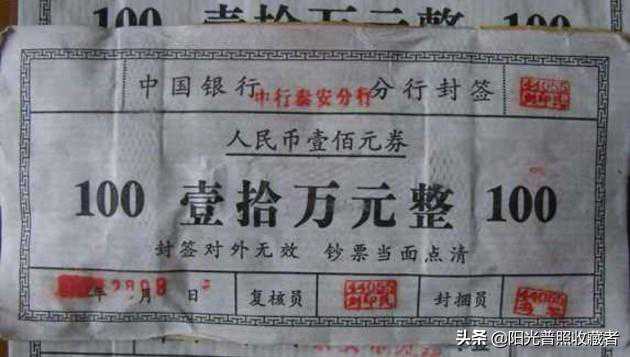 100 壹拾万元整 100
中国银行 中行泰安分行 分行封签
人民币壹佰元券
100 壹拾万元整 100
封签对外无效 钞票当面点清
年 月 日 复核员 封捆员
头条 @阳光普照收藏者